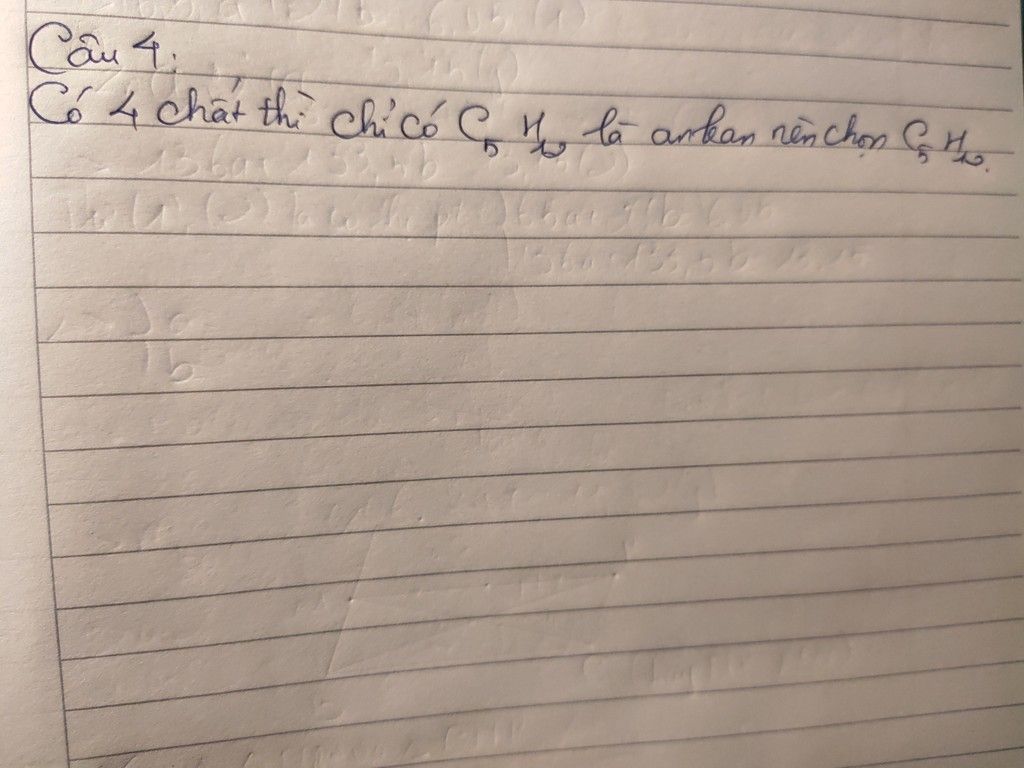 Câu 4:
Có 4 chất thì chỉ có C₅ H₁₀ là ankan nên chọn C₅ H₁₀.